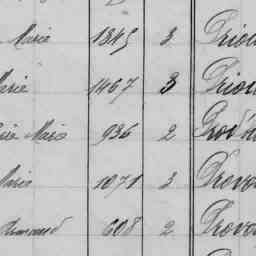 Marie 1345 3 Priou
Marie 1467 3 Priou
Marie 936 2 Prod'h
Marie 1071 3 Prevo
Armand 608 2 Provo